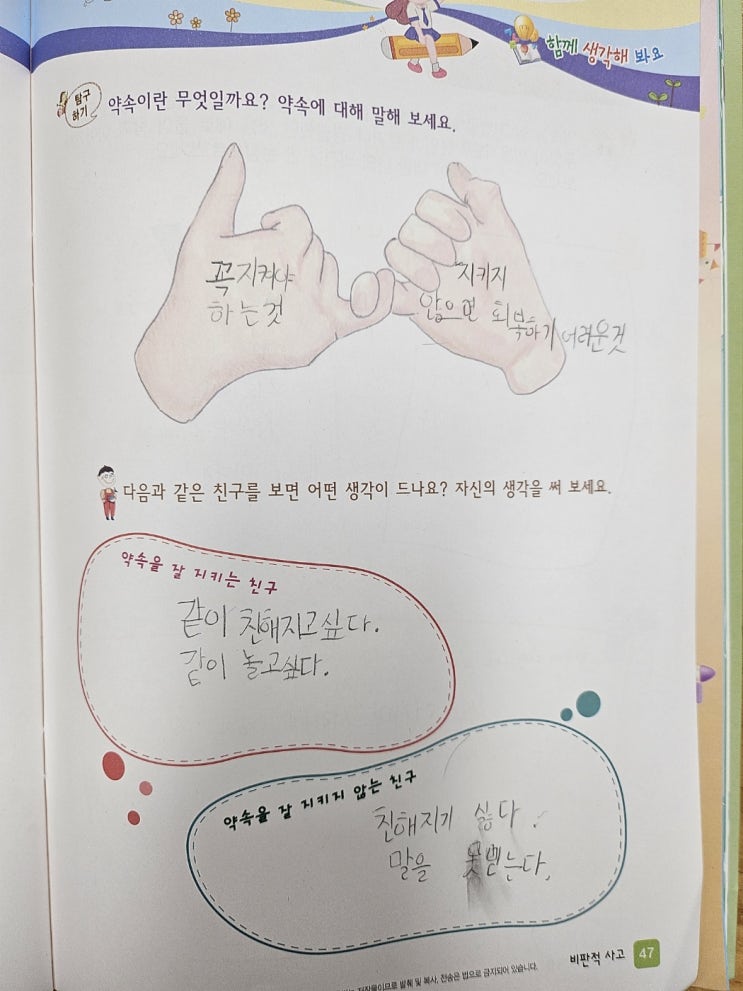 함께 생각해 봐요
탐구
하기
약속이란 무엇일까요? 약속에 대해 말해 보세요.
꼭 지켜야
하는것
지키지
않으면 회복하기 어려운것
다음과 같은 친구를 보면 어떤 생각이 드나요? 자신의 생각을 써 보세요.
약속을 잘 지키는 친구
같이 친해지고싶다.
같이 놀고싶다.
약속을 잘 지키지 않는 친구
친해지기 싫다.
말을 못믿는다.
비판적 사고 47
저작물이므로 발췌 및 복사, 전송은 법으로 금지되어 있습니다.